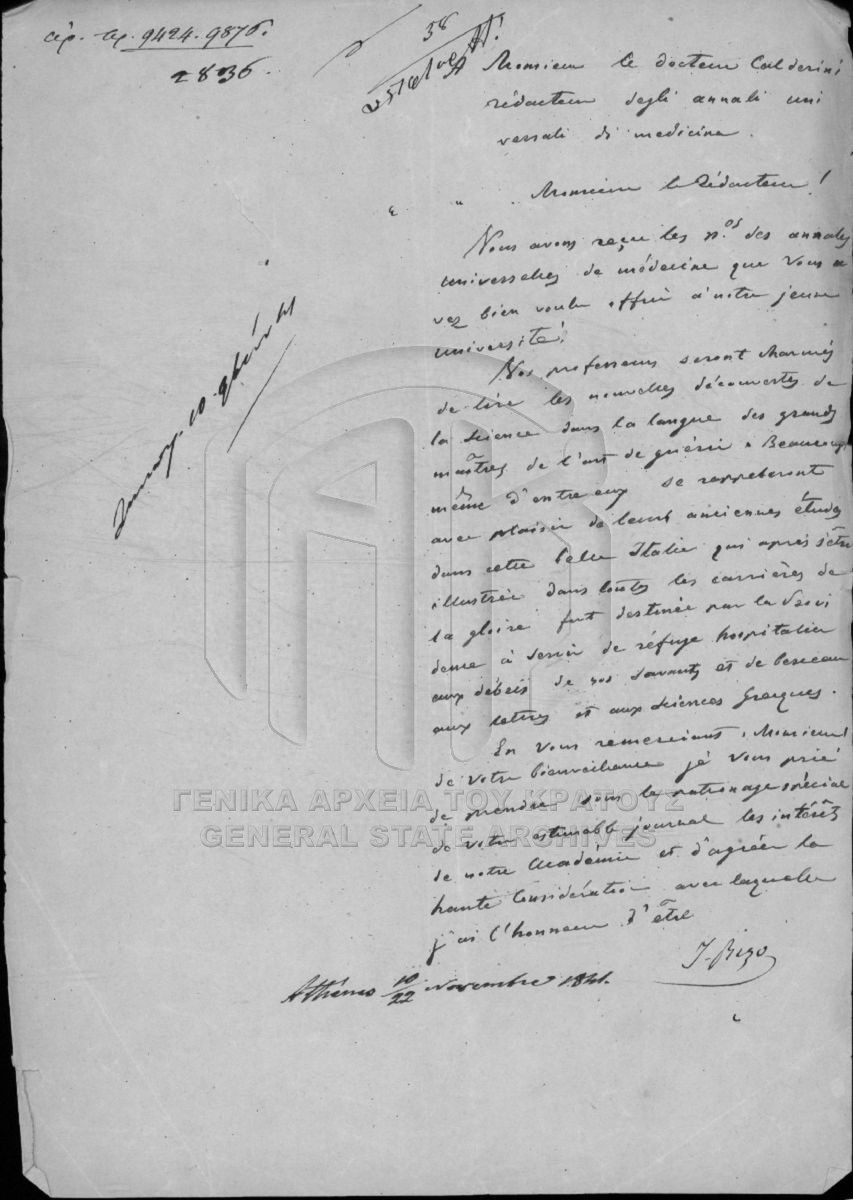 αρ. πρ. 9424. 9876.
2836.
58
A Monsieur le docteur Calderini
rédacteur degli annali uni
versali di medicina.
Monsieur le Rédacteur!
Nous avons reçu les n.os des annales
universelles de médecine que vous a
vez bien voulu offrir à notre jeune
université!
Nos professeurs seront charmés
de lire les nouvelles découvertes de
la science dans la langue des grands
maîtres de l'art de guérir. Beaucoup
même d'entre eux se rappelleront
avec plaisir de leurs anciennes études
dans cette belle Italie qui après s'être
illustrée dans toutes les carrières de
la gloire fut destinée par la Provi
dence à servir de réfuge hospitalier
aux débris de nos savants et de berceau
aux lettres et aux sciences Grecques.
En vous remerciant, Monsieur
de votre bienveillance je vous prie
de prendre sous le patronage spécial
de votre estimable journal les intérêts
de notre Académie et d'agréer la
haute considération avec laquelle
j'ai l'honneur d'être
J. Rizo
Athènes 10/22 Novembre 1841.
ΓΕΝΙΚΑ ΑΡΧΕΙΑ ΤΟΥ ΚΡΑΤΟΥΣ
GENERAL STATE ARCHIVES